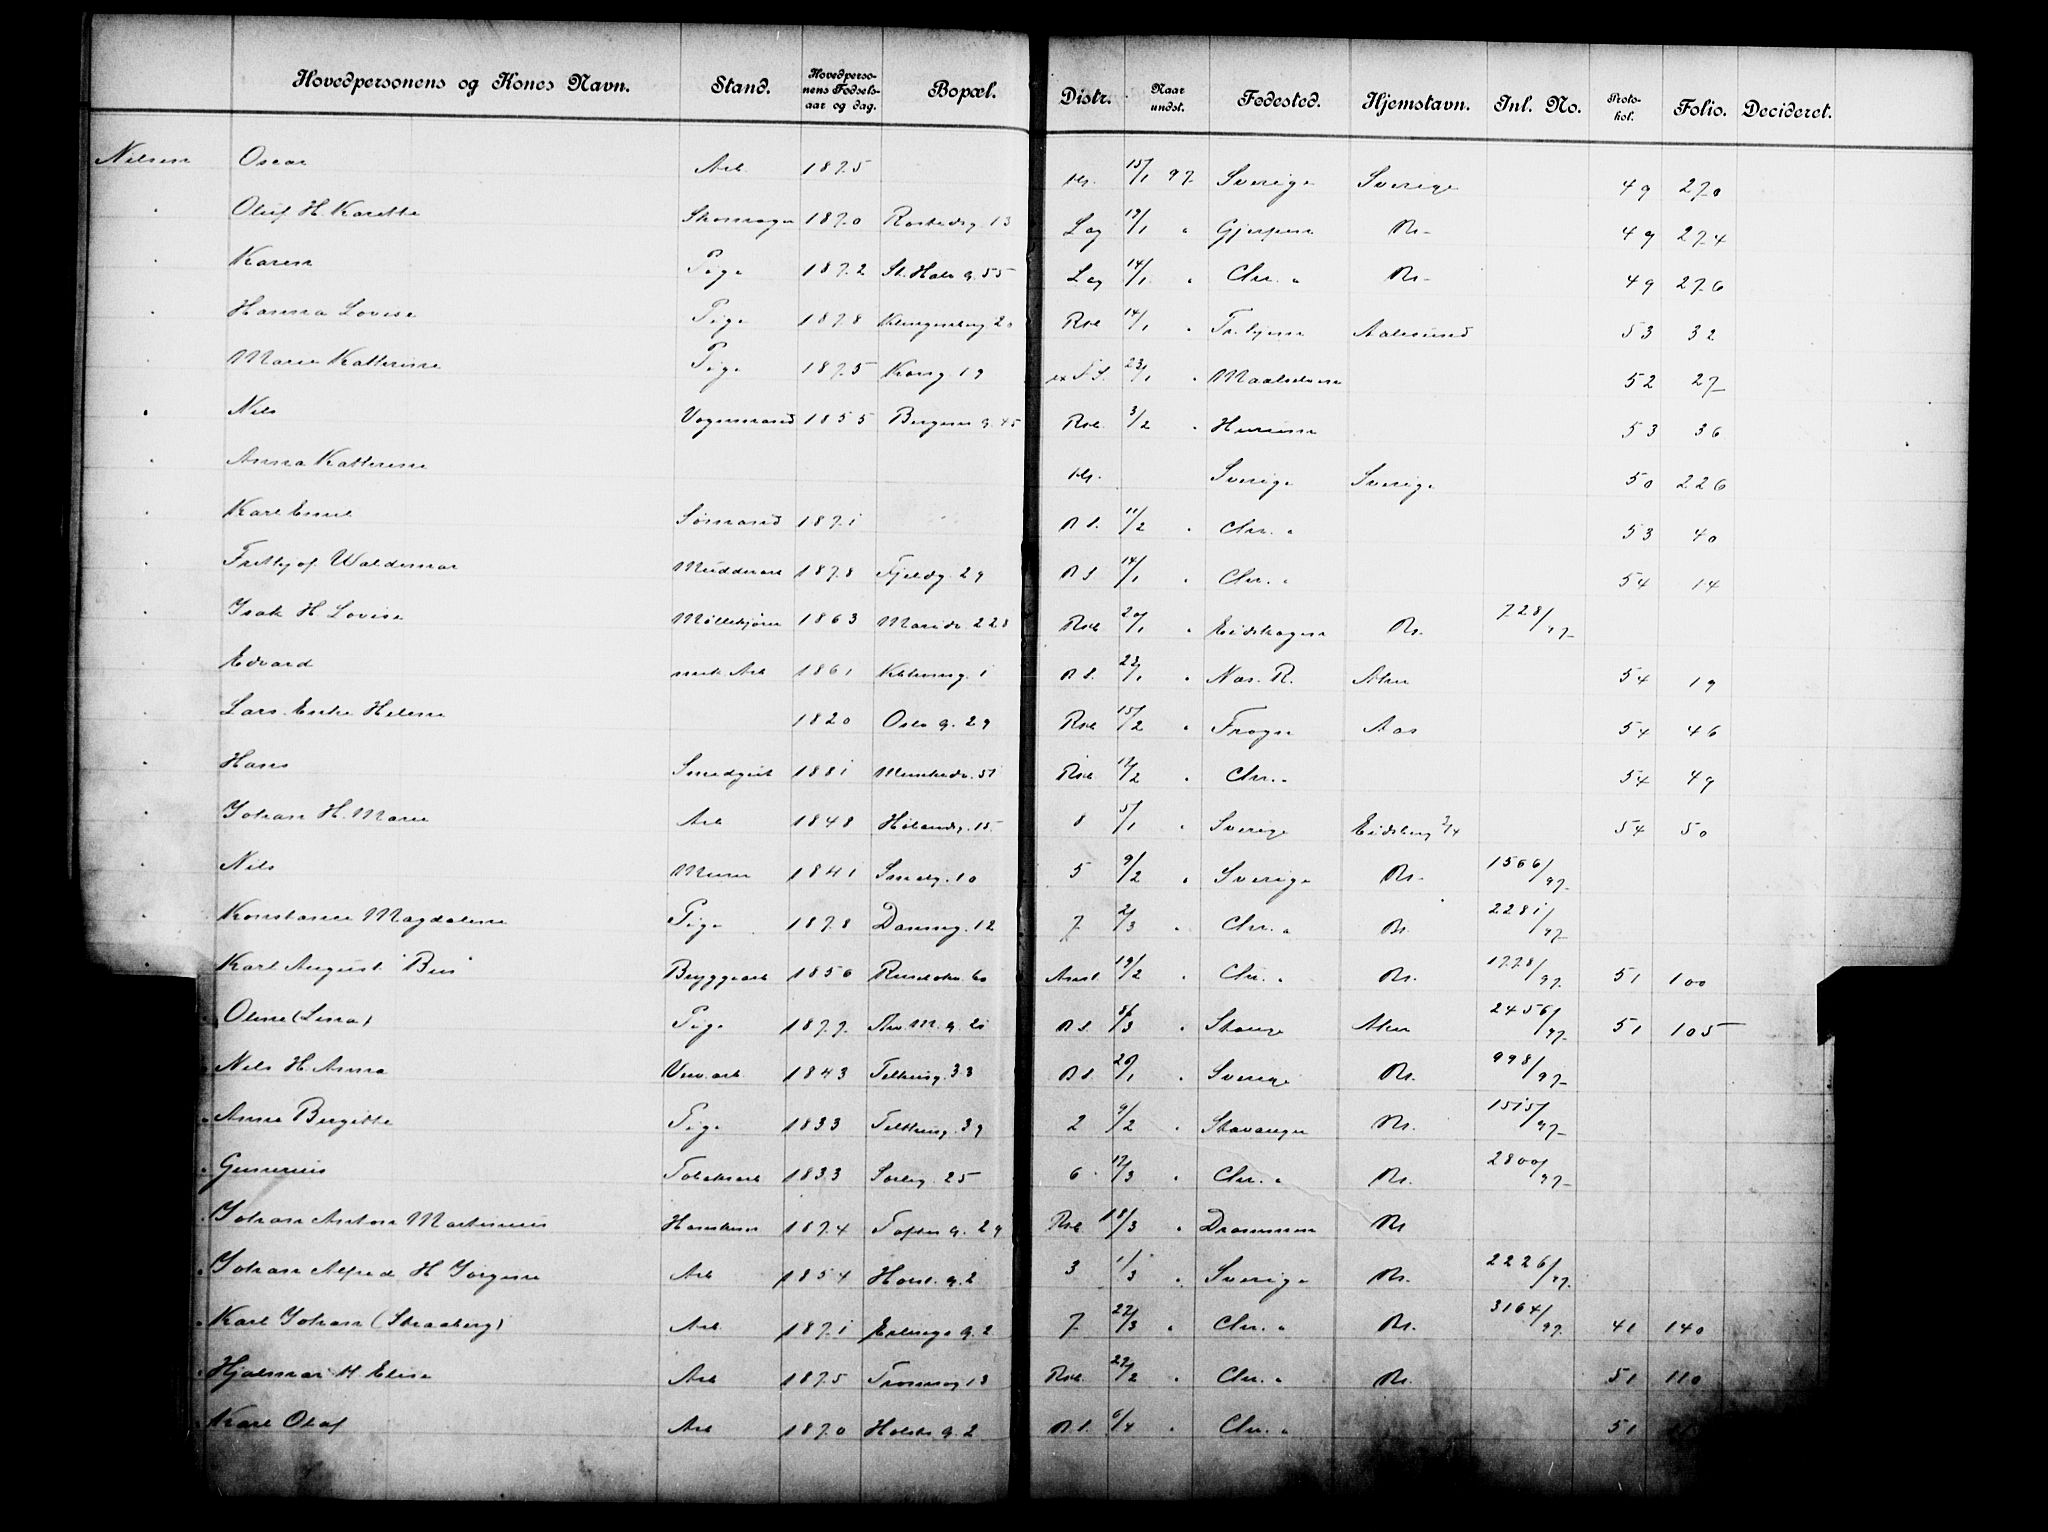 Hovedpersonens og Kones Navn. Stand. Hovedperso-nens Fødsels-aar og dag. Bopæl. Distr. Naar undst. Fødested. Hjemstavn. Inl. No. Proto-kol. Folio. Decideret.
Nilsen Oscar Arb. 1875 15/1 97. Sverige Sverige 49 270
" Oluf H. Karette Skomager 1870 13 Lag 19/1 " Gjerpen Kr. 49 274
" Karen Pige 1872 St. Hals g. 55 Lag 14/1 " Chr. " Kr. 49 276
" Hanna Lovise Pige 1878 Klingenberg 20 Rsk 14/1 " Tr.hjem Aalesund 53 32
" Marie Katterine Pige 1875 Kong. 19 23/1 " Maalselven 52 27
" Nils Vognmand 1855 Bergens g. 45 Rsk. 3/2 " Hurum 53 36
" Anna Katterine Sverige Sverige 50 226
" Karl Emil Sømand 1871 11/2 " Chr. " 53 40
" Fritjof Waldemar Mudderarb 1878 Fjeldg. 29 14/1 " Chr. " 54 14
" Isak H Lovise Møllekjører 1863 Maridv. 228 Rsk 20/1 " Eidskogen Kr. 728/97
" Edvard mek Arb 1861 1 23/1 " Nas. R. Aker 54 19
" Lars Enke Helene 1820 Oslo g. 29 Rsk 15/2 " Frogn Aas 54 46
" Hans Smedgut 1881 Munkedv. 51 Rsk 12/2 " Chr. " 54 49
" Johan H. Marie Arb 1848 Hølandsg. 15 8 5/1 " Sverige Eidsberg 2/4 54 50
" Nils Murer 1841 Smedg. 10 5 9/2 " Sverige Kr. 1566/97
" Konstance Magdalene Pige 1878 Dammg. 12 7 2/3 " Chr. " Kr. 2281/97
" Karl August "Bus" Bryggearb 1856 Ruseløkv. 60 19/2 " Chr. " Kr. 1778/97 51 100
" Oline (Lina) Pige 1877 8/3 " Stange Aker 2456/97 51 105
" Nils H. Anna Verv.arb 1843 Telthusg. 33 20/1 " Sverige Kr. 998/97
" Anne Bergitte Pige 1833 Telthusg. 39 2 9/2 " Stavanger Kr. 1515/97
" Gunerius Tobaksarb 1833 Sorlig. 25 6 17/3 " Chr. " Kr. 2800/97
" Johan Anton Martinius 1874 Toftes g. 29 Rsk 18/3 " Drammen Kr
" Johan Alfred H Jørgine Arb 1854 Holst. g. 2 3 1/3 " Sverige Kr. 2226/97
" Karl Johan (Straaberg) Arb. 1871 Erlings g. 2 7 22/3 " Chr. " Kr. 3164/97 41 140
" Hjalmar H Elise Arb 1875 Tromsøg 13 Rsk 22/2 " Chr. " Kr. 51 110
" Karl Olaf Arb 1870 Holsts g. 2 6/4 " Chr. " 51